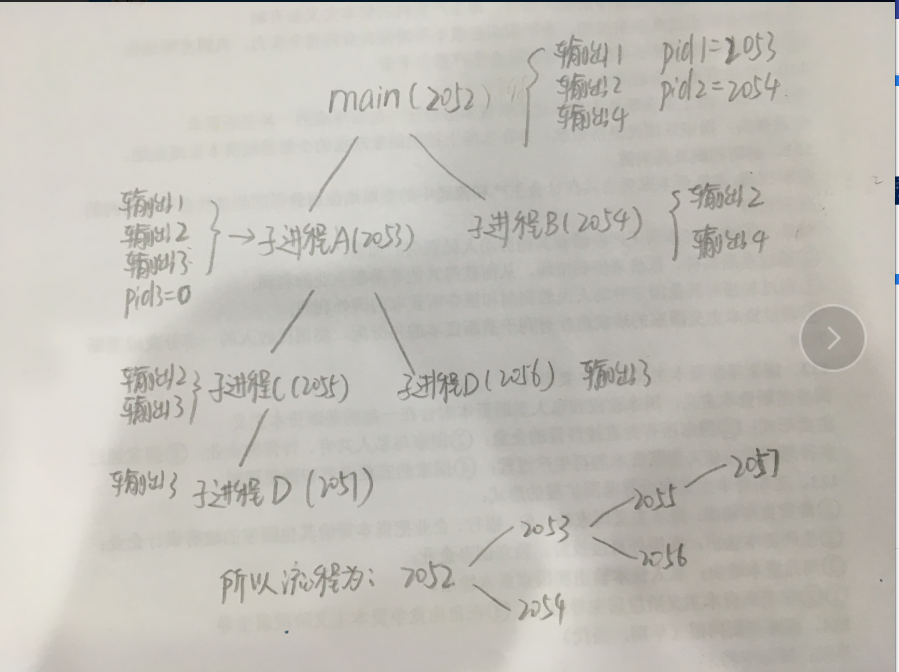 main(2052)
输出1 pid1=2053
输出2 pid2=2054
输出4
输出1
输出2
输出3
pid3=0
子进程A(2053)
子进程B(2054)
输出2
输出4
输出2
输出3
子进程C(2055)
子进程D(2056) 输出3
输出3 子进程D(2057)
所以流程为: 2052
2053
2054
2055
2056
2057